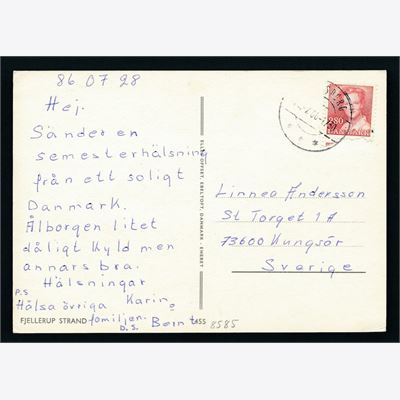 86 07 28
Hej.
Sänder en
semesterhälsning
från ett soligt
Danmark.
Ålborgen litet
dåligt kyld men
annars bra.
Hälsningar
P.S Karin o
Hälsa övriga
familjen. Bernt
D.S.
FJELLERUP STRAND
455
8585
ELLE OFFSET, EBELTOFT, DANMARK - ENERET
280
DANMARK
Linnea Andersson
St Torget 1A
73600 Kungsör
Sverige